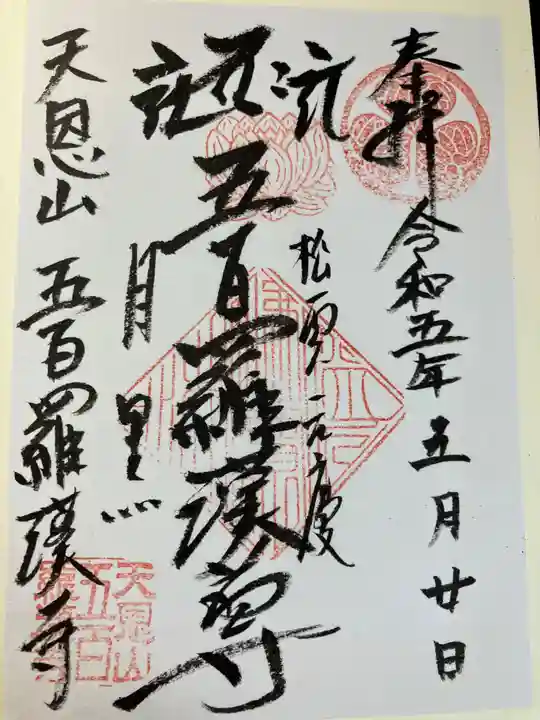 奉拝 令和五年 五月廿日
松雲元慶
五百羅漢尊
目黒
天恩山 五百羅漢寺
天恩山
五百
羅漢寺